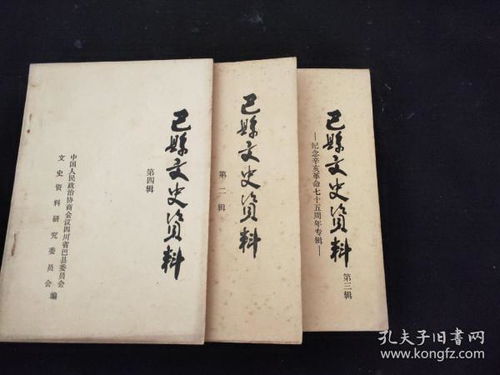 巴縣文史資料
第四辑
中国人民政治协商会议四川省巴县委员会
文史资料研究委员会编
巴縣文史資料
第二辑
巴縣文史資料
—纪念辛亥革命七十五周年专辑—
第三辑
孔夫子旧书网
www.kongfz.com